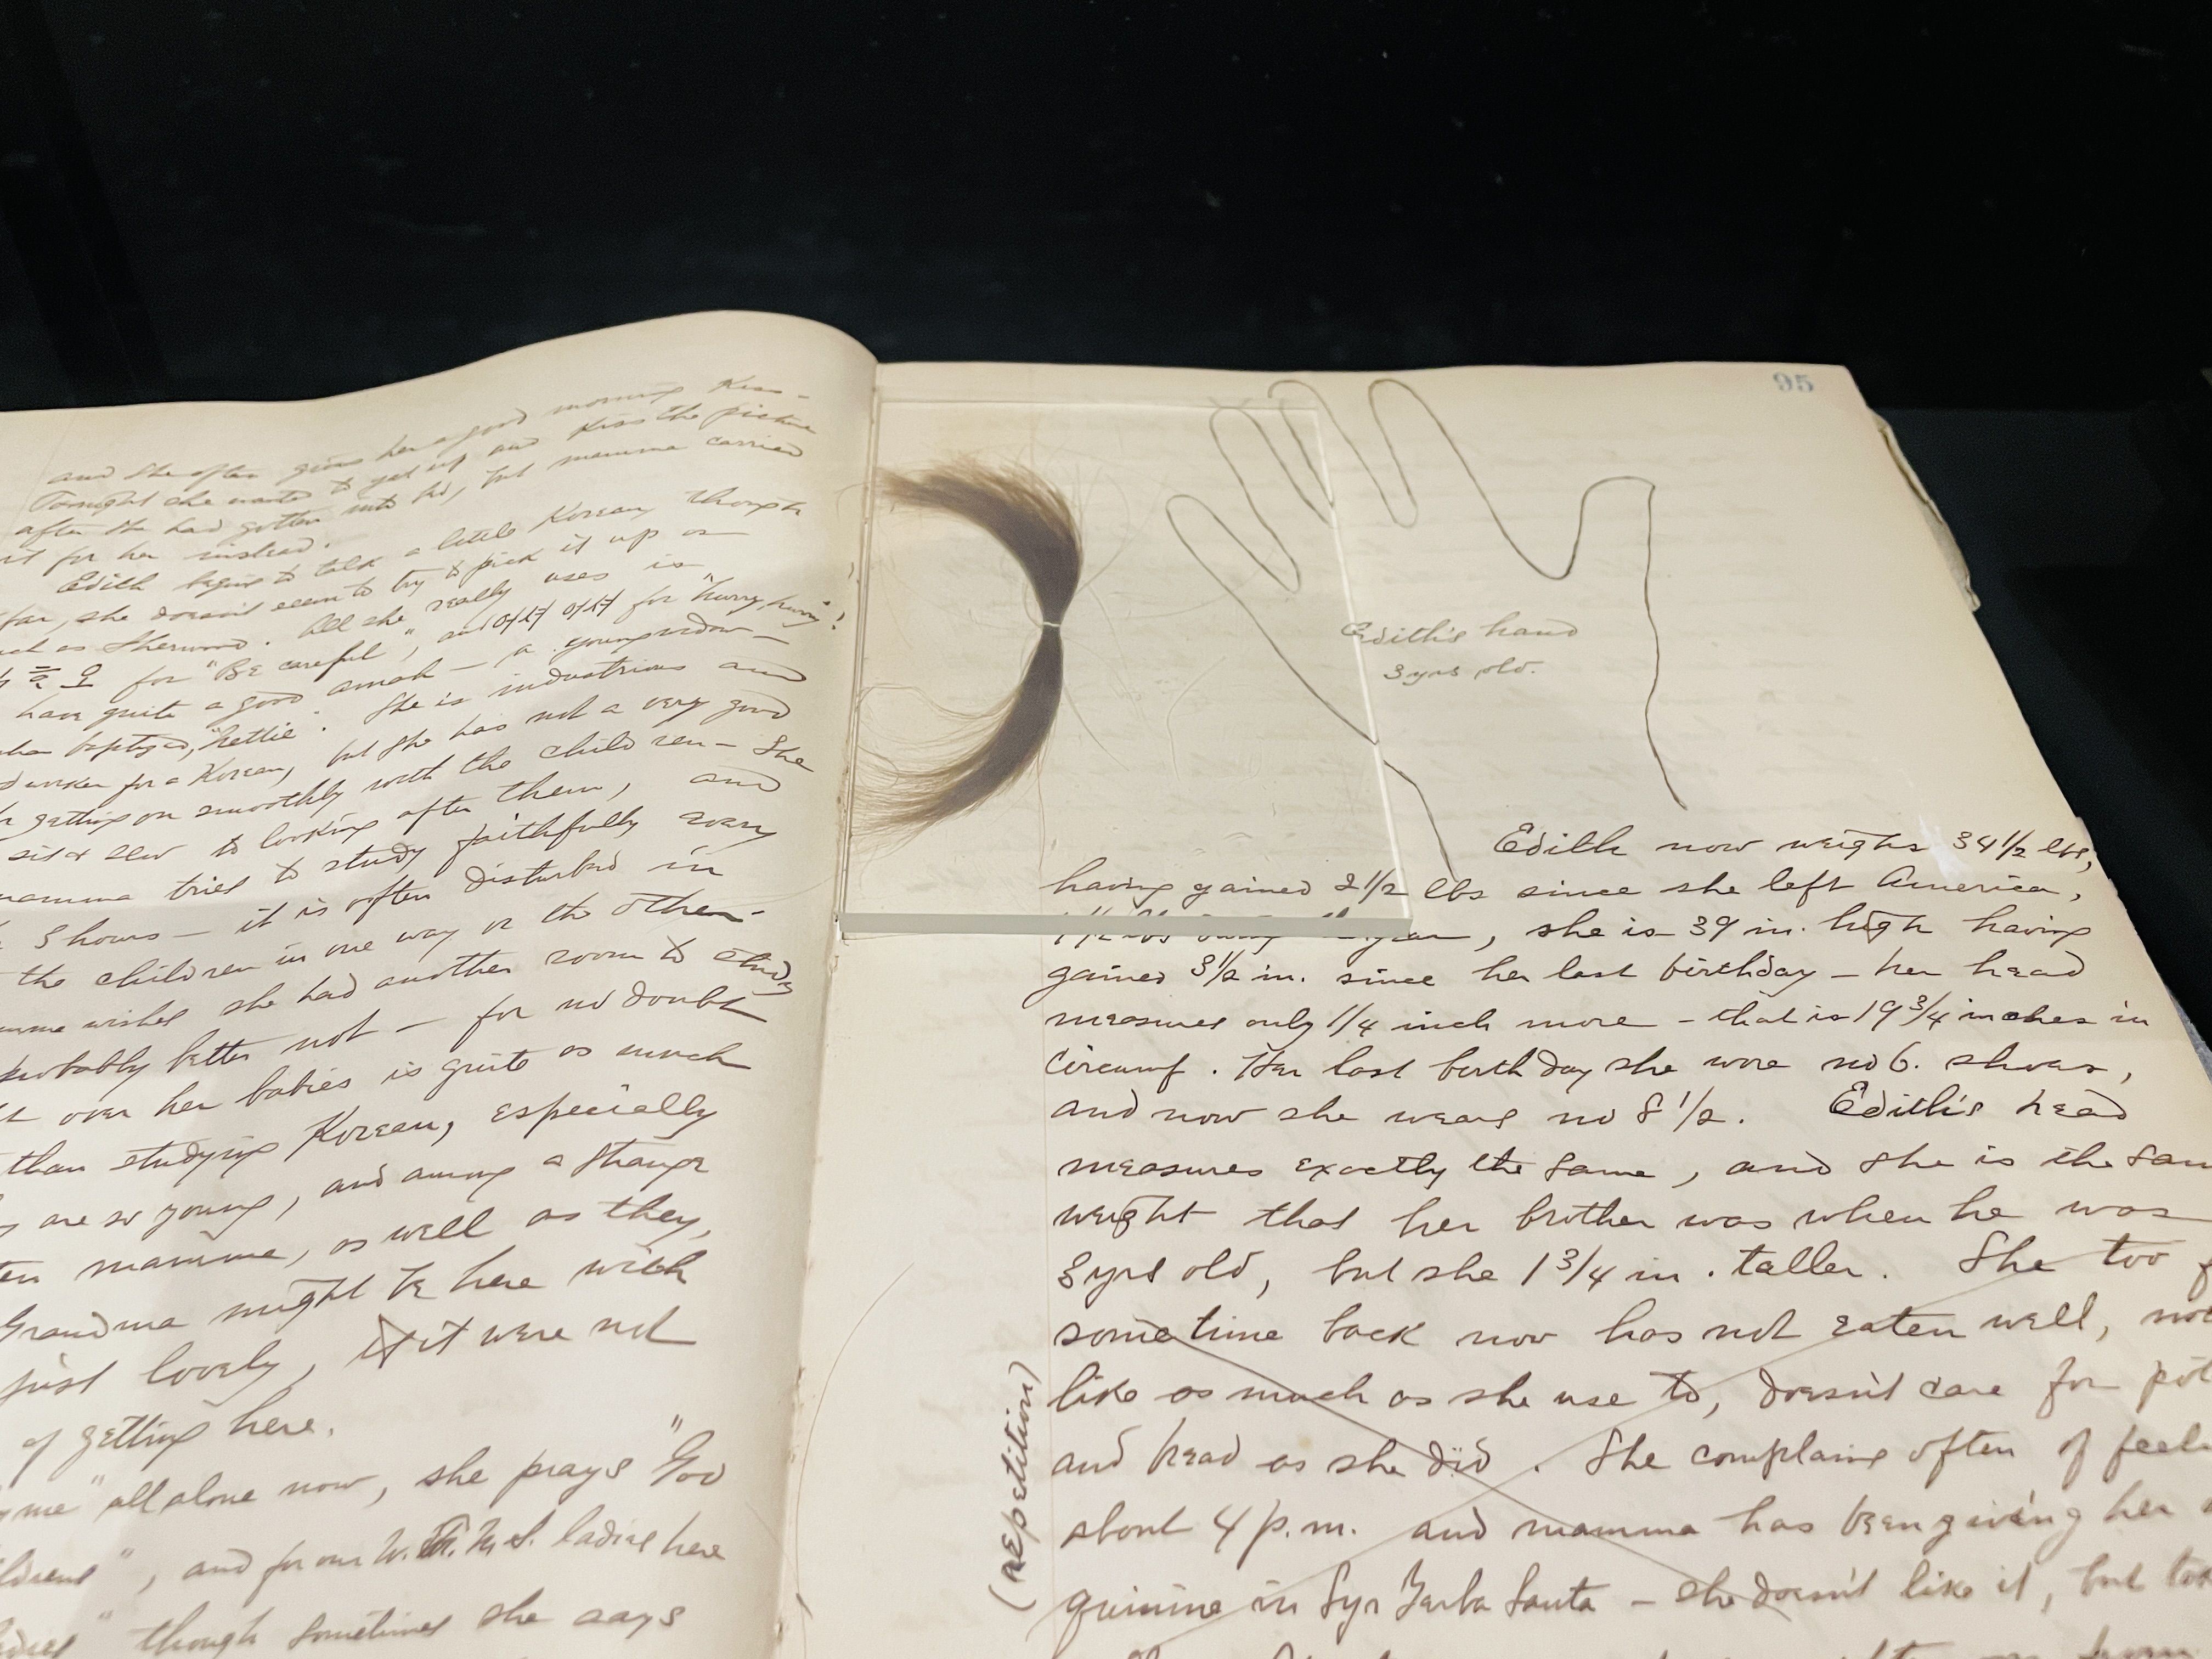 and she often gives her a good morning kiss-
Tonight she wanted to get up and kiss the picture
after she had gotten into bed, but mamma carried
it for her instead.
Edith begins to talk a little Korean though
far, she doesn't seem to try to pick it up as
as Sherwood. All she really uses is
for "Be careful", and for "hurry, hurry"!
have quite a good amah — a young widow —
baptized, "Hettie". She is industrious and
worker for a Korean, but she has not a very good
getting on smoothly with the children — She
sit & sew to looking after them, and
mamma tries to study faithfully every
3 hours — it is often disturbed in
the children in one way or the other-
wishes she had another room to study
probably better not — for no doubt
over her babies is quite as much
than studying Korean, especially
are so young, and among a strange
mamma, as well as they,
Grandma might be here with
just lovely, if it were not
of getting here.
me" all alone now, she prays "God
", and for our W.F.M.S. ladies here
" though sometimes she says
95
Edith's hand
3 yrs old.
Edith now weighs 34 1/2 lbs,
having gained 2 1/2 lbs since she left America,
, she is 39 in. high having
gained 3 1/2 in. since her last birthday — her head
measures only 1/4 inch more - that is 19 3/4 inches in
circumf. Her last birthday she wore no 6. shoes,
and now she wears no 8 1/2. Edith's head
measures exactly the same, and she is the
weight that her brother was when he was
3 yrs old, but she 1 3/4 in. taller. She too
sometime back now has not eaten well,
like as much as she use to, doesn't care for
and bread as she did. She complains often of
about 4 p.m. and mamma has been giving her
quinine in Syr Yerba Santa — she doesn't like it, but
(repetition)